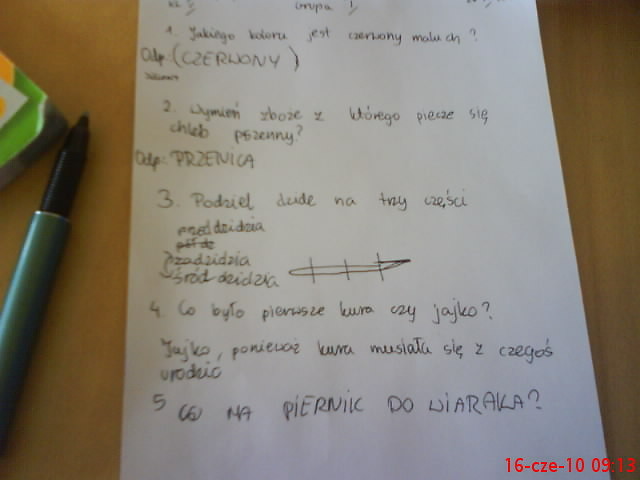 Grupa I
1. Jakiego koloru jest czerwony maluch?
Odp: (CZERWONY)
2. Wymień zboże z którego piecze się
chleb pszenny?
Odp: PRZENICA
3. Podziel dzide na trzy części
przeddzidzia
zadzidzia
śród dzidzia
4. Co było pierwsze kura czy jajko?
Jajko, ponieważ kura musiała się z czegoś
urodzić
5 CO MA PIERNIK DO WIARAKA?
16-cze-10 09:13